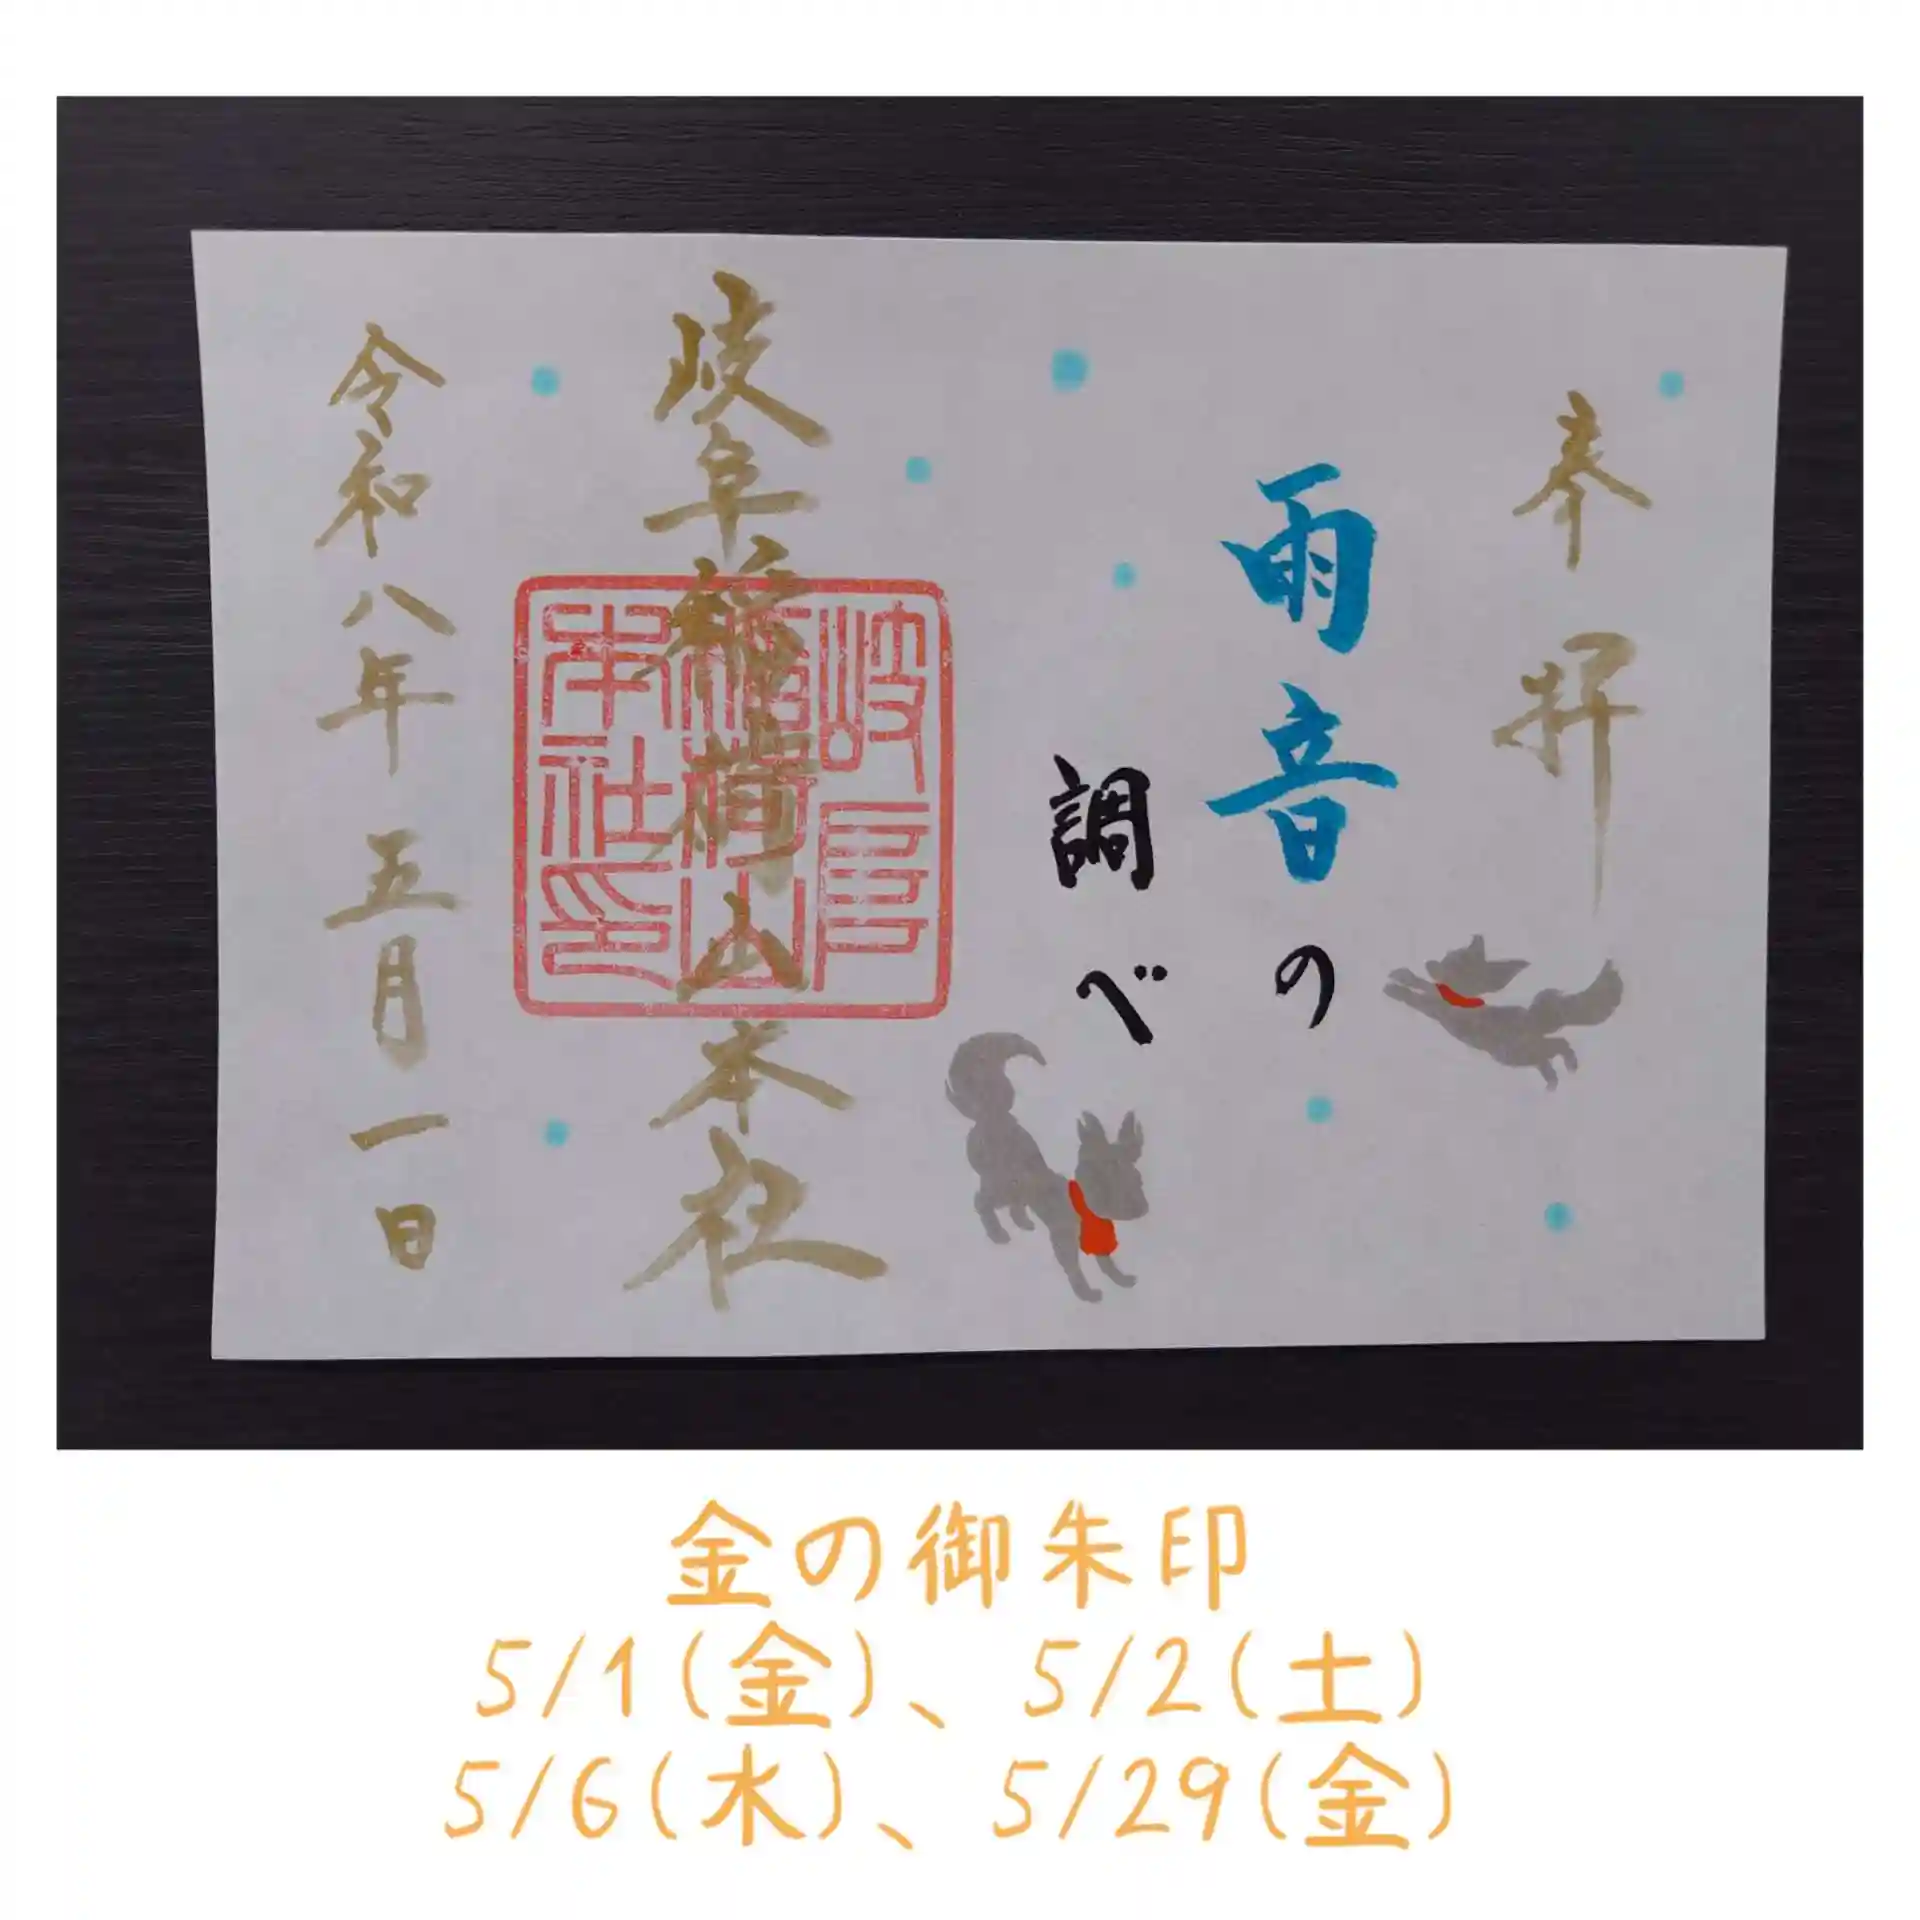 奉拝
雨音の
調べ
岐阜稲荷山本社
岐阜
稲荷山
本社印
令和八年五月一日
金の御朱印
5/1(金)、5/2(土)
5/6(水)、5/29(金)